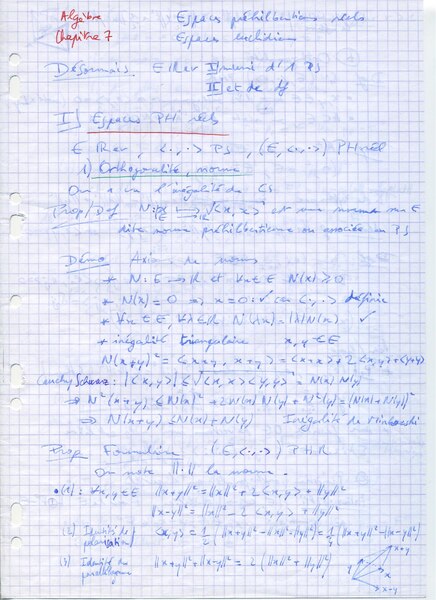 Algèbre Espaces préhilbertiens réels
Chapitre 7 Espaces euclidiens
Désormais E Rev I) muni d'1 PS
II) et de df
I) Espaces PH réels
E Rev, <.,.> PS, (E, <.,.>) PH réel
1) Orthogonalité, norme
On a vu l'inégalité de CS
Prop/Def N: E → R x ↦ √<x,x> est une norme sur E
dite norme préhilbertienne ou associée au PS
Démo Axiomes de norme
* N: E → R et ∀x∈E N(x) ≥ 0
* N(x) = 0 ⇒ x = 0 : ✓ car <.,.> définie
* ∀x∈E, ∀λ∈R, N(λx) = |λ|N(x) ✓
* inégalité triangulaire x,y∈E
N(x+y)² = <x+y, x+y> = <x,x> + 2<x,y> + <y,y>
Cauchy Schwarz : |<x,y>| ≤ √<x,x><y,y> = N(x) N(y)
⇒ N²(x+y) ≤ N(x)² + 2N(x)N(y) + N²(y) = (N(x)+N(y))²
⇒ N(x+y) ≤ N(x)+N(y) Inégalité de Minkowski
Prop Formulaire (E,<.,.>) PHR
On note ||.|| la norme.
(1) : ∀x,y∈E ||x+y||² = ||x||² + 2<x,y> + ||y||²
||x-y||² = ||x||² - 2<x,y> + ||y||²
(2) Identité de polarisation <x,y> = 1/2 (||x+y||² - ||x||² - ||y||²) = 1/4 (||x+y||² - ||x-y||²)
(3) Identité du parallélogramme ||x+y||² + ||x-y||² = 2(||x||² + ||y||²)
x+y
x
y